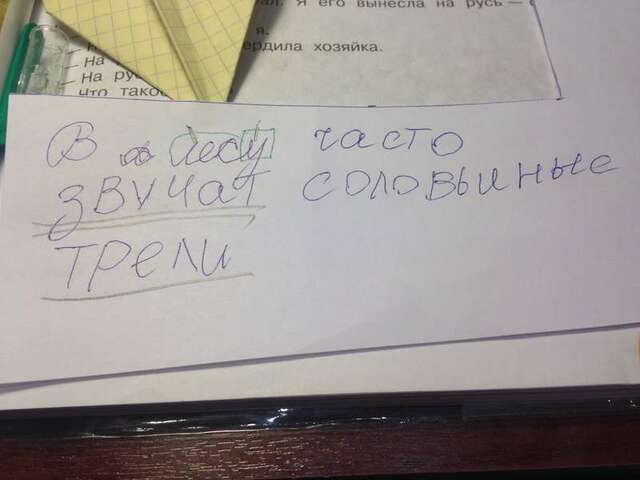 я его вынесла на русь —
я.
ердила хозяйка.
На
На ру
что тако
В лесу часто
звучат соловьиные
трели